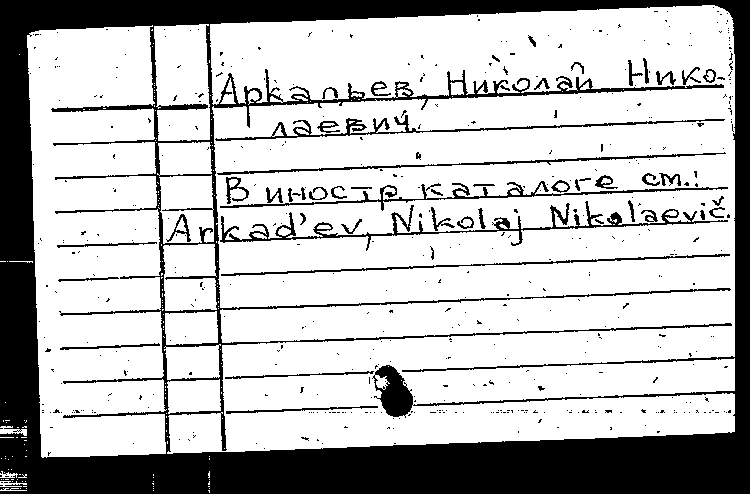 Аркадьев, Николай Нико-
лаевич.
В иностр. каталоге см.:
Arkad'ev, Nikolaj Nikolaevič.